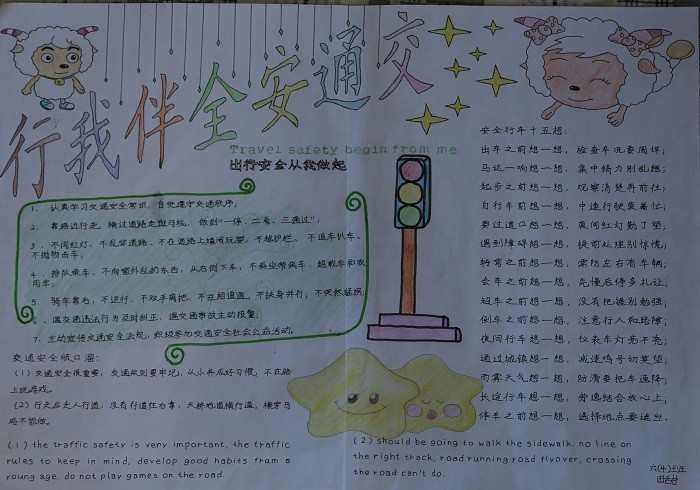 交通安全伴我行
Travel safety begin from me
出行安全从我做起
1、认真学习交通安全常识，自觉遵守交通秩序。
2、靠路边行走，横过道路走斑马线，做到“一停、二看、三通过”；
3、不闯红灯、不乱穿道路、不在道路上嬉闹玩耍、不越护栏、不追车扒车、
不抛物击车；
4、排队乘车、不向窗外乱扔东西，从右侧下车，不乘坐带病车、超载车和农
用车；
5、骑车靠右，不逆行、不双手离把、不互相追逐、不扶身并行；不突然猛拐
6、遇交通违法行为及时纠正、遇交通事故主动报警；
7、主动宣传交通安全法规，积极参加交通安全社会公益活动。
交通安全顺口溜：
（1）交通安全很重要，交通规则要牢记，从小养成好习惯，不在路
上玩游戏。
（2）行走应走人行道，没有行道往右靠，天桥地道横行道，横穿马
路不能做。
(1) the traffic safety is very important, the traffic
rules to keep in mind, develop good habits fram a
young age, do not play games on the road.
(2) should be going to walk the sidewalk, no line on
the right track, road running road flyover, crossing
the road can't do.
安全行车十五想：
出车之前想一想，检查车况要周详；
马达一响想一想，集中精力别乱想；
起步之前想一想，观察清楚再前往；
自行车前想一想，中速行驶莫着忙；
要过道口想一想，莫闯红灯勤了望；
遇到障碍想一想，提前处理别惊慌；
转弯之前想一想，需防左右有车辆；
会车之前想一想，先慢后停多礼让；
超车之前想一想，没有把握别勉强；
倒车之前想一想，注意行人和路障；
夜间行车想一想，仪表车灯亮不亮；
通过城镇想一想，减速鸣号切莫望；
雨雾天气想一想，防滑要把车速降；
长途行车想一想，劳逸结合放心上；
停车之前想一想，选择地点要适当。
六(4)班